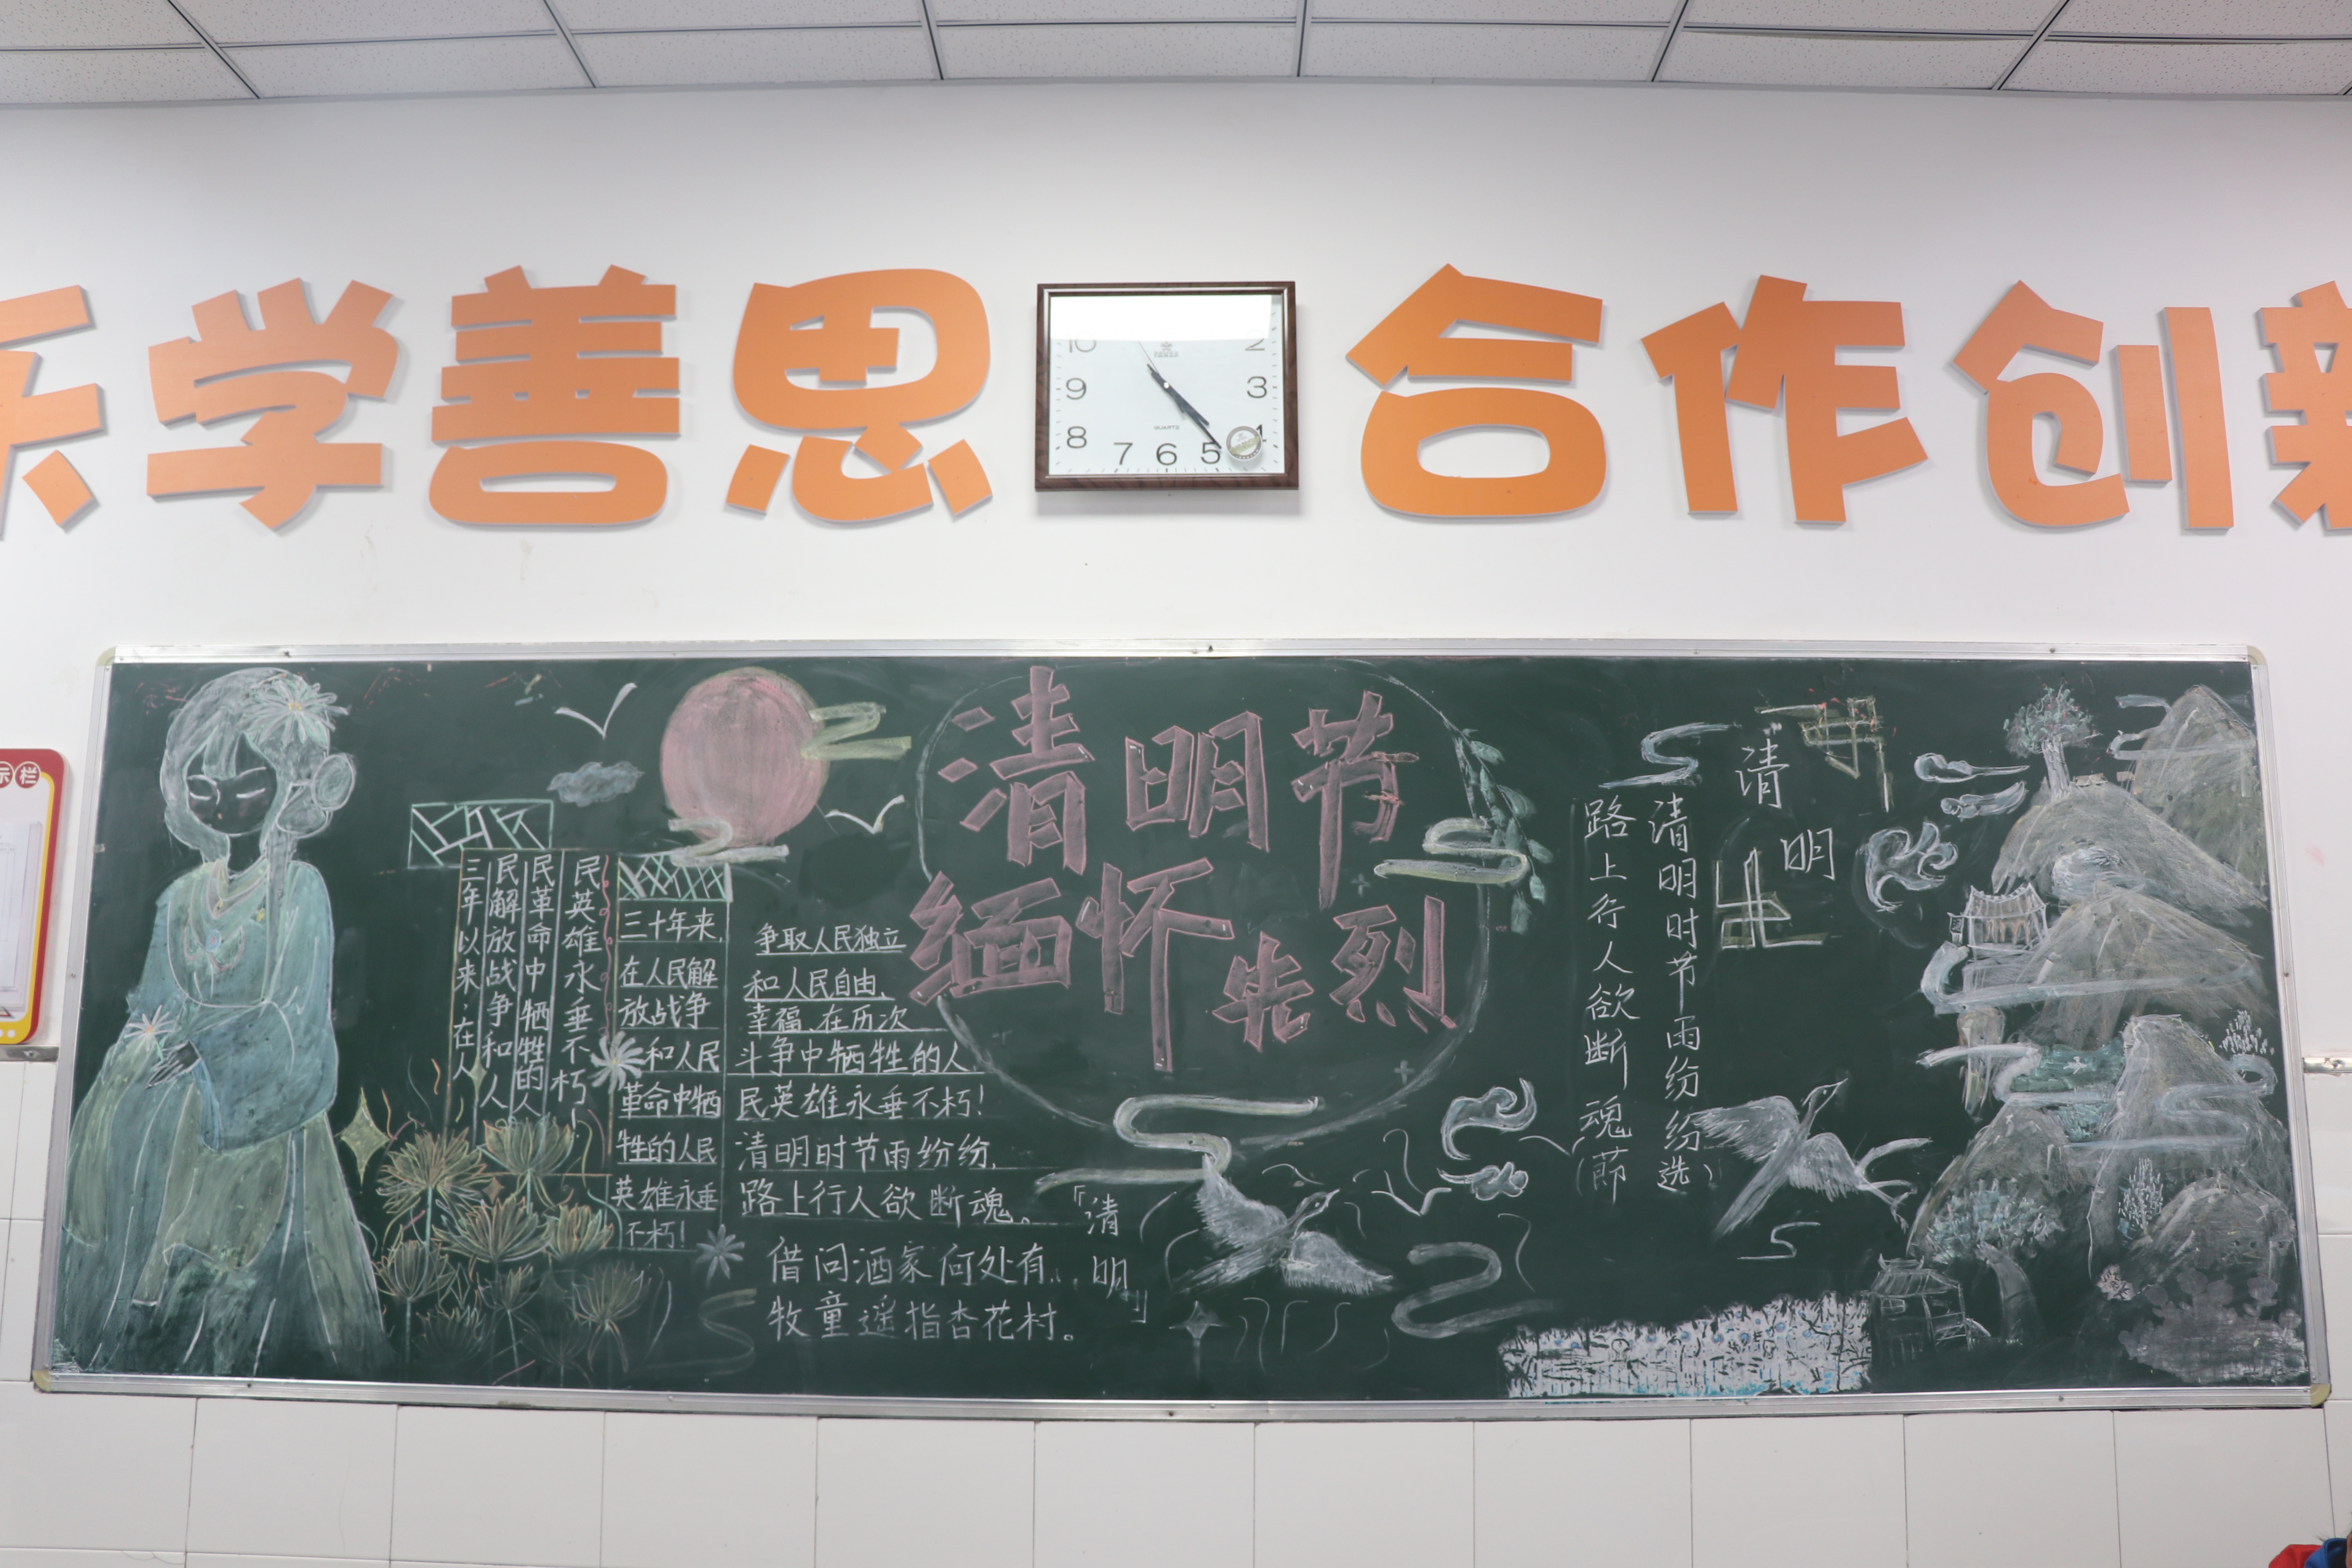 乐学善思 合作创新
示栏
10 2
9 3
8 4
7 6 5
QUARTZ
清明节
缅怀先烈
三年以来,在人
民解放战争和人
民革命中牺牲的人
民英雄永垂不朽!
三十年来,
在人民解
放战争
和人民
革命中牺
牲的人民
英雄永垂
不朽!
争取人民独立
和人民自由、
幸福、在历次
斗争中牺牲的人
民英雄永垂不朽!
清明时节雨纷纷,
路上行人欲断魂。
借问酒家何处有,
牧童遥指杏花村。
「清明」
“清明
清明时节雨纷纷
路上行人欲断魂
(節选)